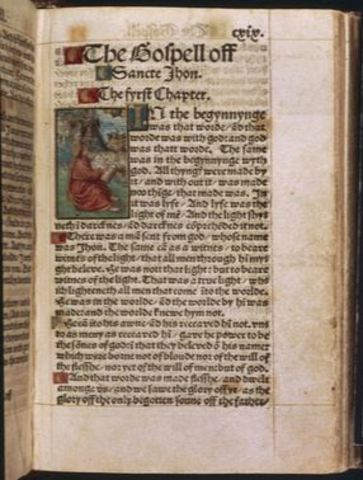 cxix.
The Gospell off
Sancte Jhon.
The fyrst Chapter.
IN the begynnynge
was that worde/ ãd that
worde was with god: and god
was thatt worde. The same
was in the begynnynge wyth
god. All thyngꝭ were made by
it/ and with out it/ was made
noo thige/ that made was. In
it was lyfe/ And lyfe was the
light of mẽ/ And the light shyneth
i darcknes/ ãd darcknes cõprehẽded it not.
There was a mã sent from god/ whose name
was Jhon. The same cã as a witnes/ to beare
witnes of the light/ that all men through hi mys
ght beleve. He was nott that light: but to beare
witnes of the light. That was a true light/ whi
ch lighteneth all men that come ito the worlde.
He was in the worlde/ ãd the worlde by hi was
made: and the worlde knewe hym not.
He cã ito his awne/ ãd his receaved hi not. vns
to as meny as receaved hi/ gave he power to be
the sõnes of god: i that they beleved õ his name:
which were borne not of bloude nor of the will of
the flesshe/ nor yet of the will of men: but of god.
And that worde was made flesshe/ and dwelt
amonge vs/ and we sawe the glory off yt/ as the
glory off the only begotten sonne off the father/